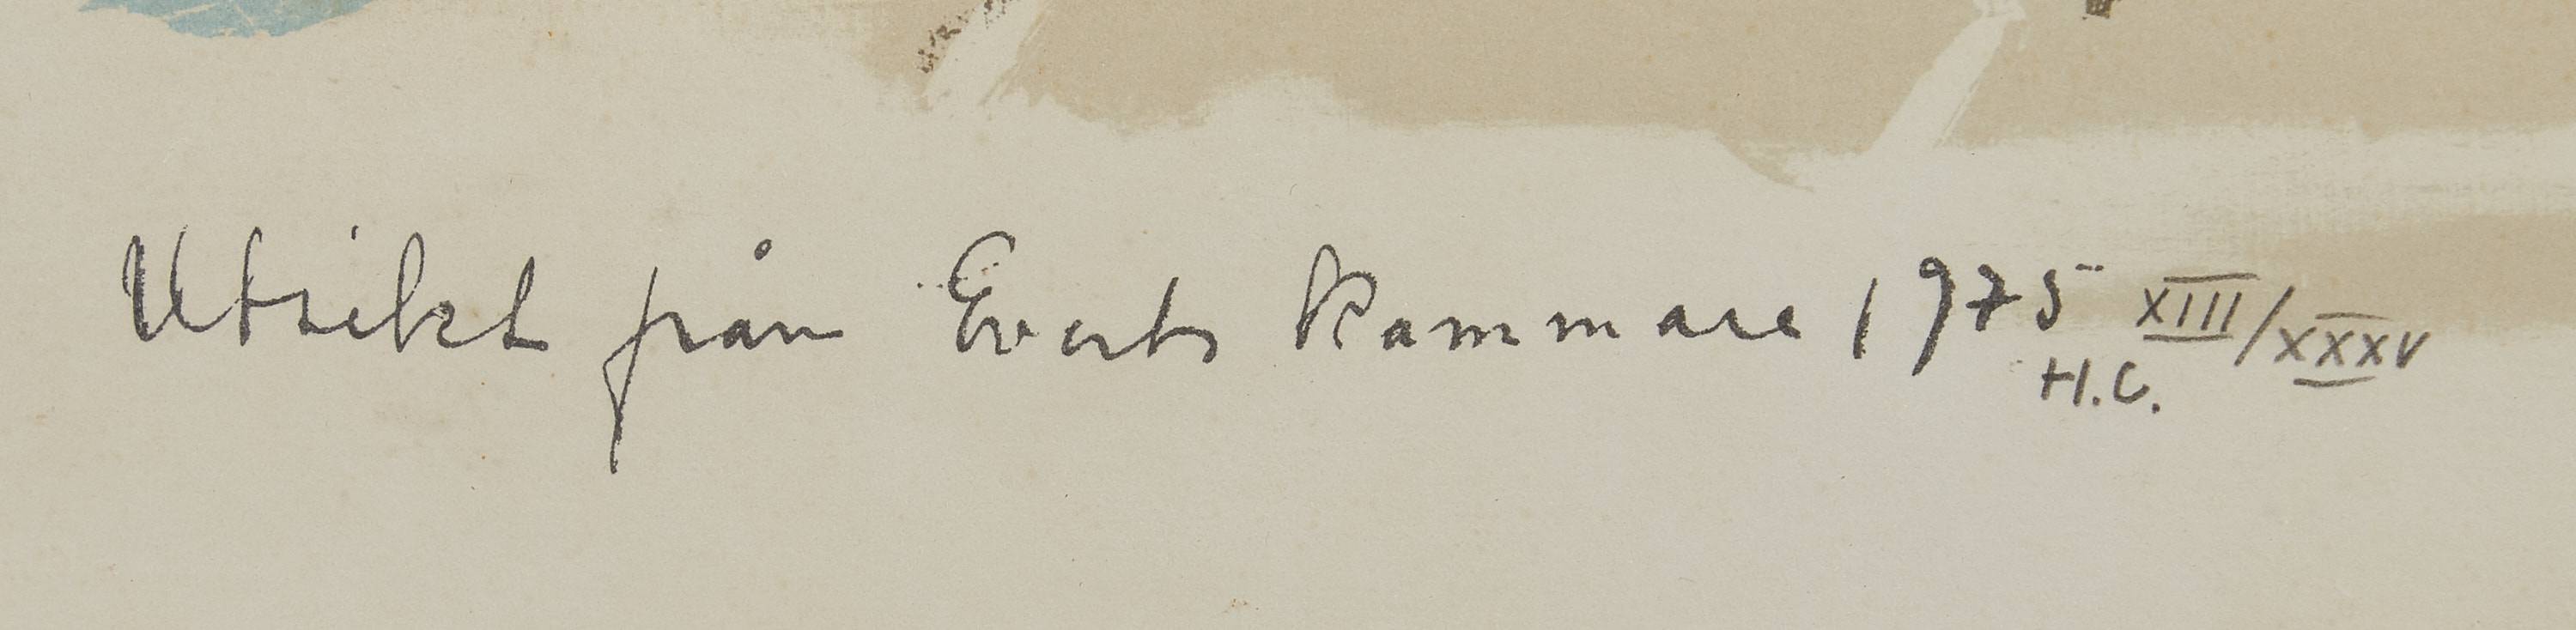 Utsikt från Everts Kammare 1975 XIII/XXXV
H.C.